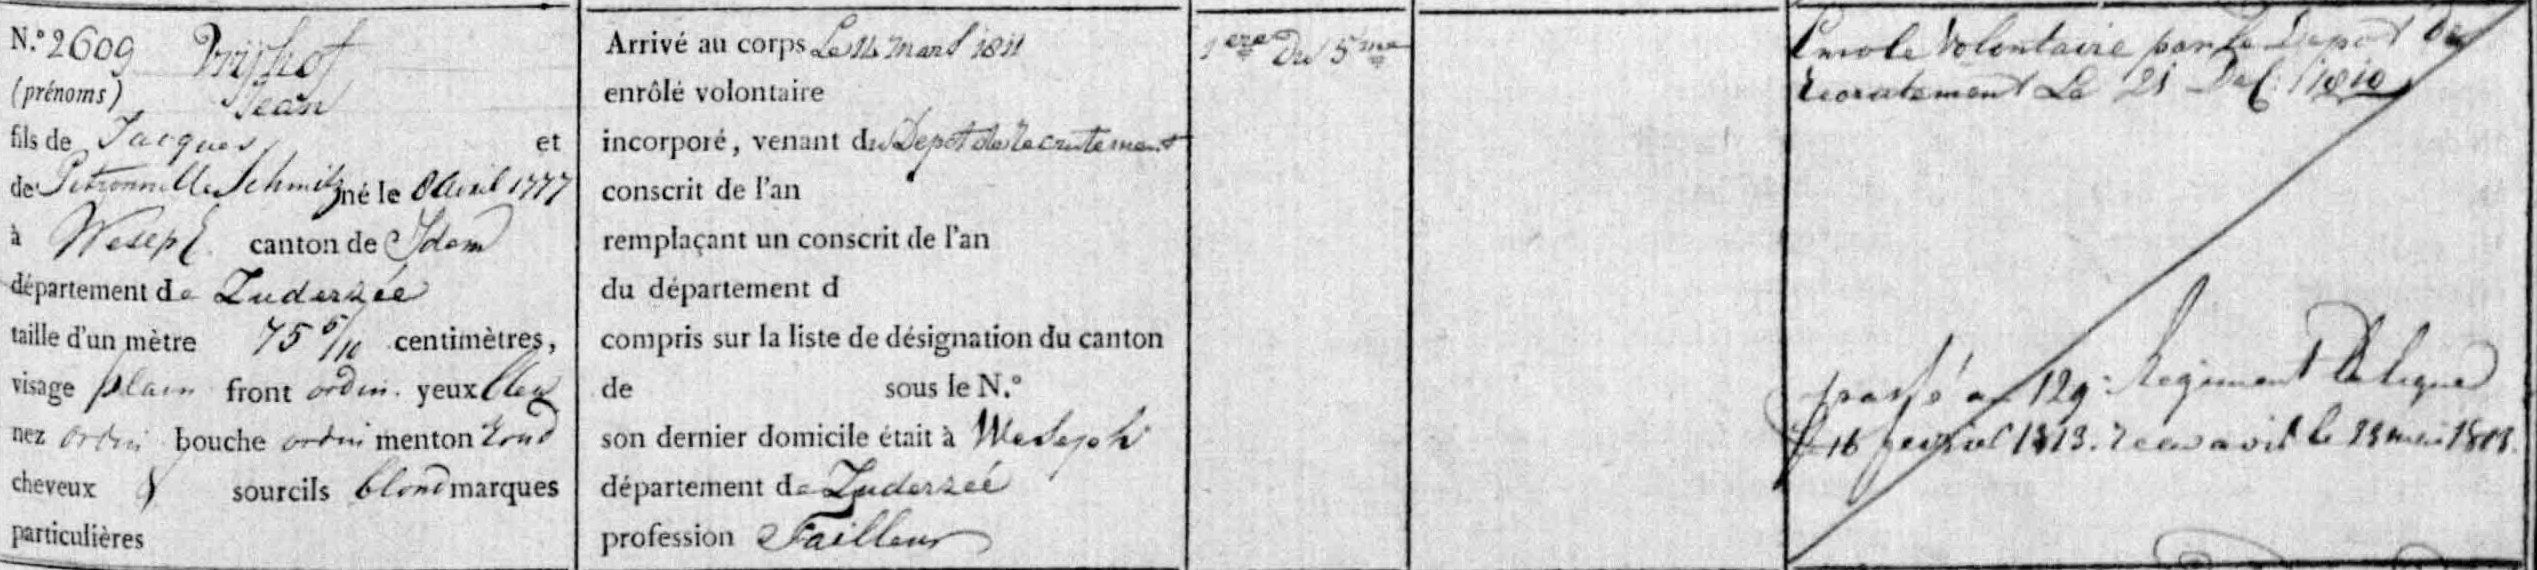 N.° 2609 Vrijhof
(prénoms) Jean
fils de Jacques et
de Petronnelle Schmitz né le 8 Avril 1777
à Wesep canton de Idem
département de Zuderzée
taille d'un mètre 75 5/10 centimètres,
visage plain front ordin. yeux bleu
nez ordin bouche ordin menton rond
cheveux & sourcils blond marques
particulières
Arrivé au corps Le 14 Mars 1811
enrôlé volontaire
incorporé, venant du Depot de recrutement
conscrit de l'an
remplaçant un conscrit de l'an
du département d
compris sur la liste de désignation du canton
de sous le N.°
son dernier domicile était à Weseph
département de Zuderzée
profession Tailleur
1ere Du 5me
Enrole Volontaire par le Depot de
recrutement Le 21 Dec: 1810
passé au 129e Regiment de ligne
le 16 fevrier 1813. recu avis le 23 mai 1813.